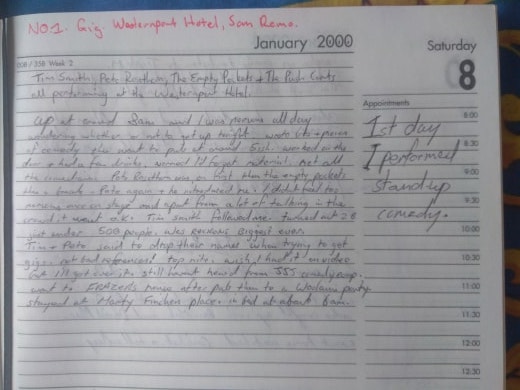 NO.1. Gig. Westernport Hotel, San Remo.
January 2000
Saturday
008 / 358 Week 2
8
Tim Smith, Pete Rowthorn, The Empty Pockets + The Push
all performing at the Westernport Hotel.
Appointments
8:00
up at around 8am and I was nervous all day
1st day
wondering whether or not to get up tonight. wrote lots + pieces
8:30
of comedy. went to pub at around 5ish. worked on the
I performed
9:00
door + had a few drinks. worried I'd forget material. Met all
the comedians. Pete Rowthorn was on first then the empty pockets
standup
9:30
then a break. Pete again + he introduced me. I didn't feel too
nervous once on stage and apart from a lot of talking in the
comedy.
crowd it went o.k. Tim Smith followed me. turned out 2 B
10:00
just under 500 people. was REMOS biggest ever.
Tim + Pete said to drop their names when trying to get
10:30
gigs. not bad references top nite. wish I had it on video
but I'll get over it. still haven't heard from JJJ
11:00
went to FRAZERS house after pub then to a Wodami party
stayed at Marty Finchen place. in bed at about 6am.
11:30
12:00
12:30